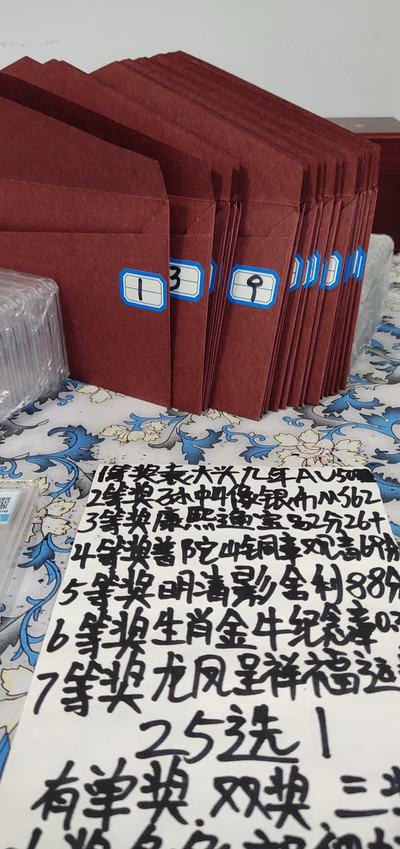 1
3
9
1等奖袁大头九年AU50
2等奖孙中山像银币MS62
3等奖康熙通宝82分26+
4等奖普陀山铜章观音69分
5等奖明清影金利88分
6等奖生肖金牛纪念章03
7等奖龙凤呈祥福运
25选1
有单奖.双奖三